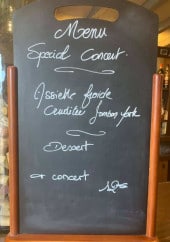 Menu
Special Concert.
Assiette froide
Crudités Jambon York
Dessert
+ concert